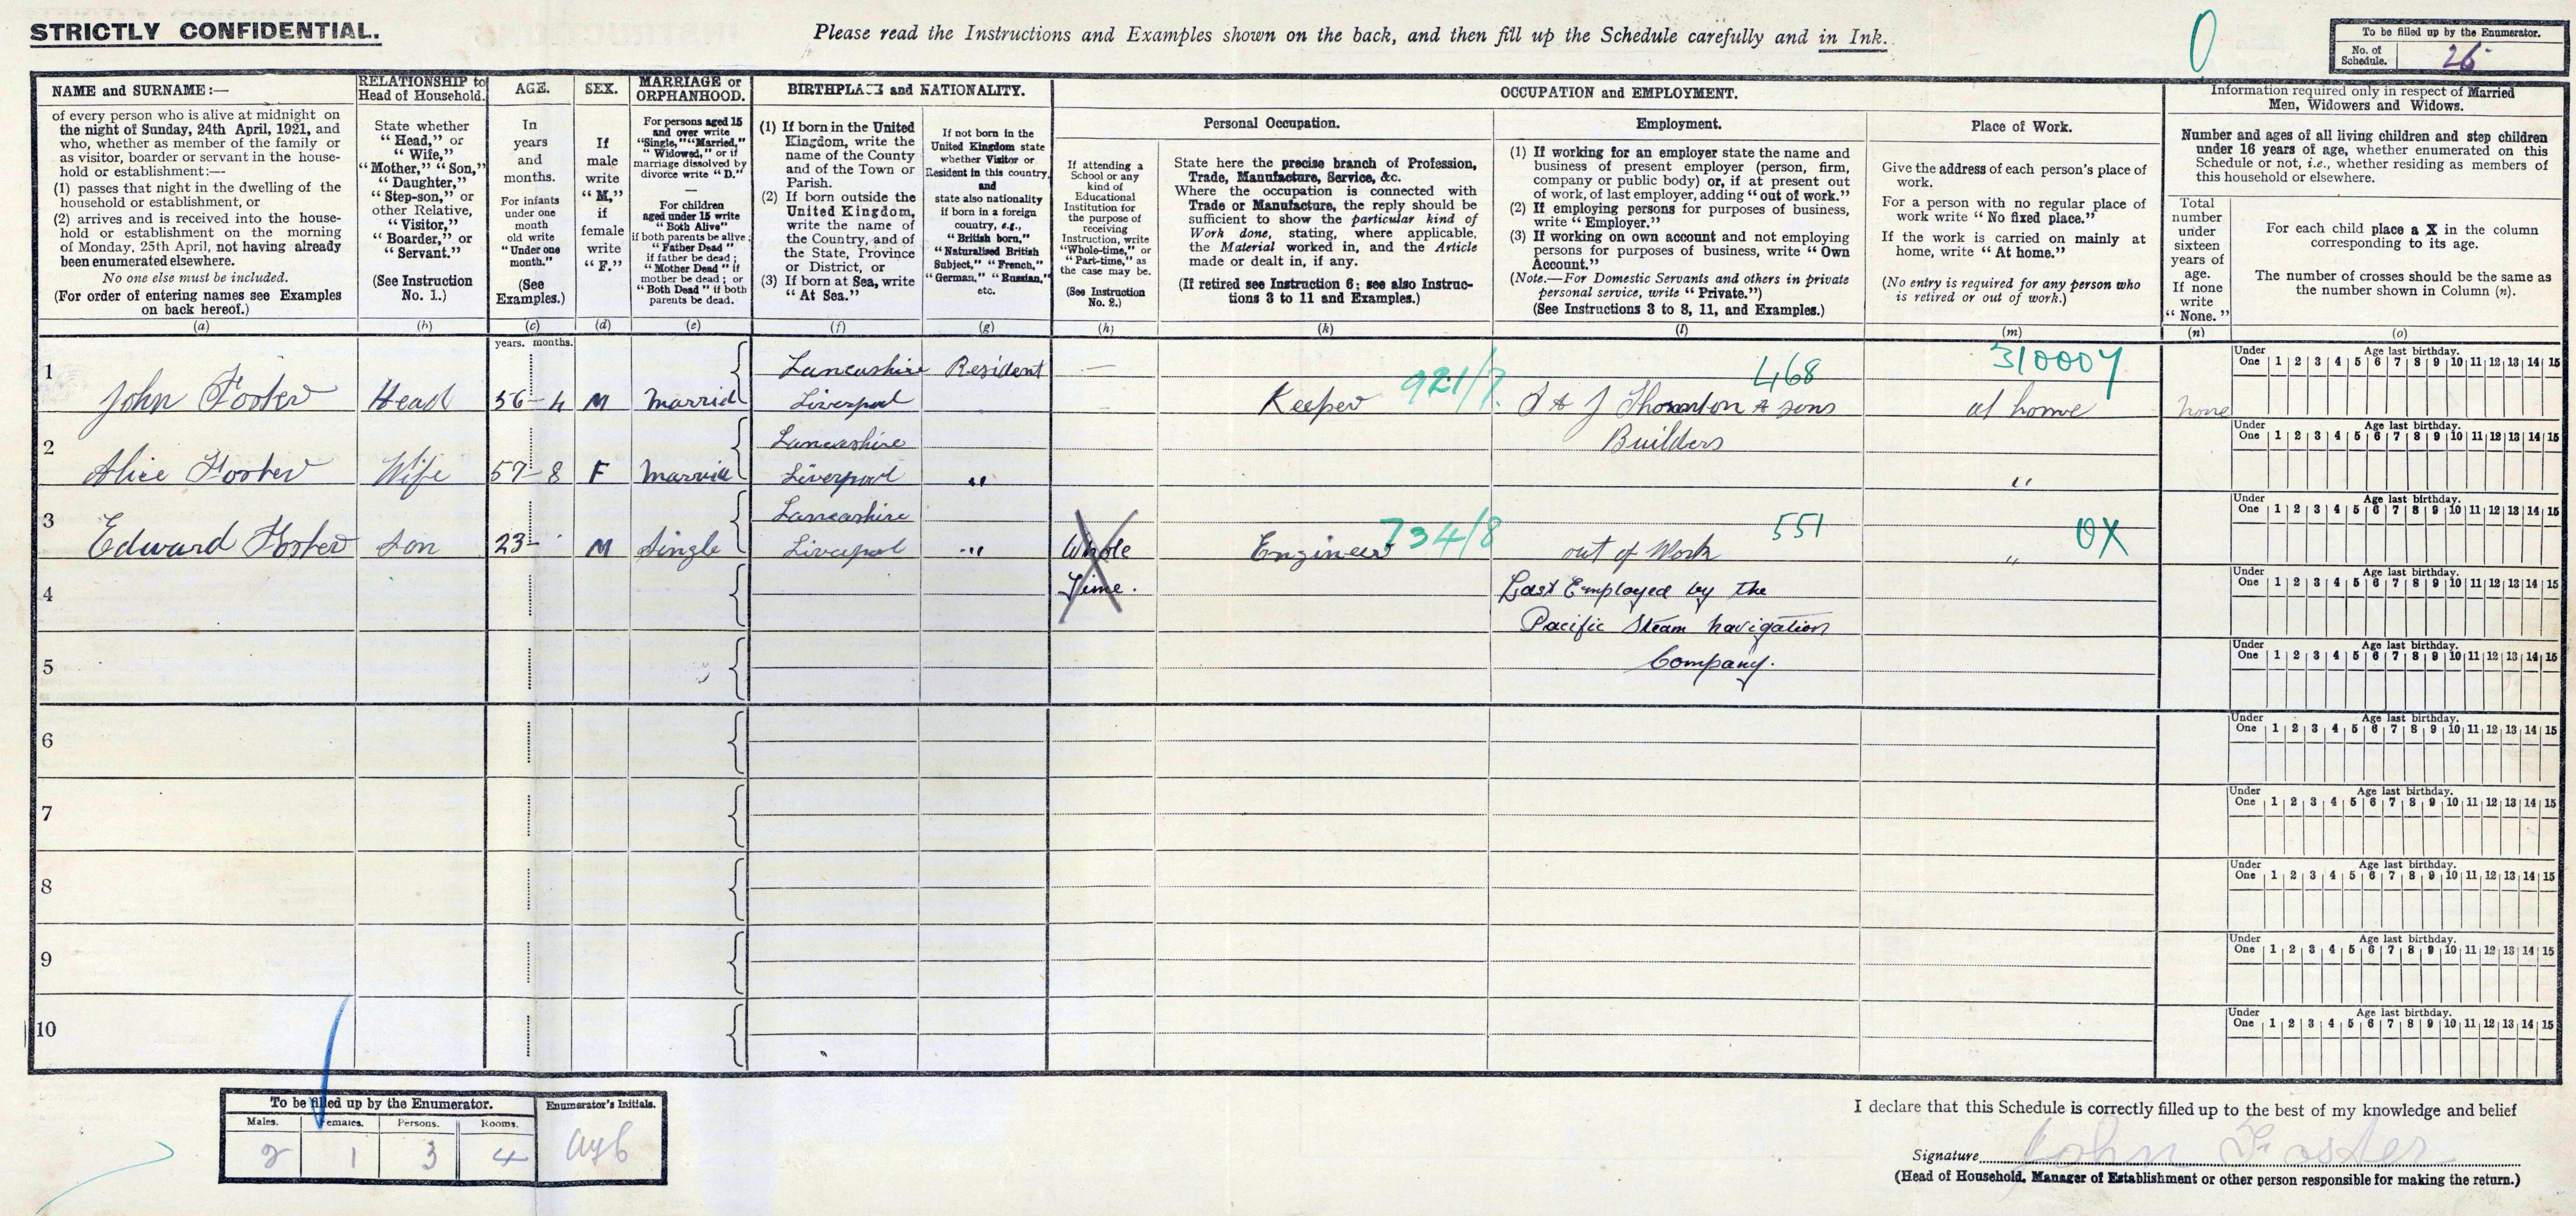 STRICTLY CONFIDENTIAL.
Please read the Instructions and Examples shown on the back, and then fill up the Schedule carefully and in Ink.
0
To be filled up by the Enumerator.
No. of Schedule. 26
NAME and SURNAME:—
of every person who is alive at midnight on
the night of Sunday, 24th April, 1921, and
who, whether as member of the family or
as visitor, boarder or servant in the house-
hold or establishment:—
(1) passes that night in the dwelling of the
household or establishment, or
(2) arrives and is received into the house-
hold or establishment on the morning
of Monday, 25th April, not having already
been enumerated elsewhere.
No one else must be included.
(For order of entering names see Examples
on back hereof.)
(a)
RELATIONSHIP to
Head of Household.
State whether
"Head," or
"Wife,"
"Mother," "Son,"
"Daughter,"
"Step-son," or
other Relative,
"Visitor,"
"Boarder," or
"Servant."
(See Instruction
No. 1.)
(b)
AGE.
In
years
and
months.
For infants
under one
month
old write
"Under one
month."
(See
Examples.)
(c)
SEX.
If
male
write
"M,"
if
female
write
"F."
(d)
MARRIAGE or
ORPHANHOOD.
For persons aged 15
and over write
"Single," "Married,"
"Widowed," or if
marriage dissolved by
divorce write "D."
—
For children
aged under 15 write
"Both Alive"
if both parents be alive;
"Father Dead"
if father be dead;
"Mother Dead" if
mother be dead; or
"Both Dead" if both
parents be dead.
(e)
BIRTHPLACE and NATIONALITY.
(1) If born in the United
Kingdom, write the
name of the County
and of the Town or
Parish.
(2) If born outside the
United Kingdom,
write the name of
the Country, and of
the State, Province
or District, or
(3) If born at Sea, write
"At Sea."
(f)
If not born in the
United Kingdom state
whether Visitor or
Resident in this country,
and
state also nationality
if born in a foreign
country, e.g.,
"British born,"
"Naturalised British
Subject," "French,"
"German," "Russian,"
etc.
(g)
OCCUPATION and EMPLOYMENT.
Personal Occupation.
If attending a
School or any
kind of
Educational
Institution for
the purpose of
receiving
Instruction, write
"Whole-time," or
"Part-time," as
the case may be.
(See Instruction
No. 2.)
(h)
State here the precise branch of Profession,
Trade, Manufacture, Service, &c.
Where the occupation is connected with
Trade or Manufacture, the reply should be
sufficient to show the particular kind of
Work done, stating, where applicable,
the Material worked in, and the Article
made or dealt in, if any.
(If retired see Instruction 6; see also Instruc-
tions 3 to 11 and Examples.)
(k)
Employment.
(1) If working for an employer state the name and
business of present employer (person, firm,
company or public body) or, if at present out
of work, of last employer, adding "out of work."
(2) If employing persons for purposes of business,
write "Employer."
(3) If working on own account and not employing
persons for purposes of business, write "Own
Account."
(Note.—For Domestic Servants and others in private
personal service, write "Private.")
(See Instructions 3 to 8, 11, and Examples.)
(l)
Place of Work.
Give the address of each person's place of
work.
For a person with no regular place of
work write "No fixed place."
If the work is carried on mainly at
home, write "At home."
(No entry is required for any person who
is retired or out of work.)
(m)
Information required only in respect of Married
Men, Widowers and Widows.
Number and ages of all living children and step children
under 16 years of age, whether enumerated on this
Schedule or not, i.e., whether residing as members of
this household or elsewhere.
Total
number
under
sixteen
years of
age.
If none
write
"None."
(n)
For each child place a X in the column
corresponding to its age.
The number of crosses should be the same as
the number shown in Column (n).
(o)
years. months.
1
Lancashire Resident — 468 31000Y
John Foster Head 56-4 M Married Liverpool Keeper 921/7 & J Thornton & Sons at home none
Under One Age last birthday. 1 2 3 4 5 6 7 8 9 10 11 12 13 14 15
2
Lancashire Builders
Alice Foster Wife 57-8 F Married Liverpool " "
Under One Age last birthday. 1 2 3 4 5 6 7 8 9 10 11 12 13 14 15
3
Lancashire 734/8 551 0X
Edward Foster Son 23- M Single Liverpool " Whole Engineer out of Work "
Under One Age last birthday. 1 2 3 4 5 6 7 8 9 10 11 12 13 14 15
4
Time. Last Employed by the
Pacific Steam Navigation
Under One Age last birthday. 1 2 3 4 5 6 7 8 9 10 11 12 13 14 15
5
Company.
Under One Age last birthday. 1 2 3 4 5 6 7 8 9 10 11 12 13 14 15
6
Under One Age last birthday. 1 2 3 4 5 6 7 8 9 10 11 12 13 14 15
7
Under One Age last birthday. 1 2 3 4 5 6 7 8 9 10 11 12 13 14 15
8
Under One Age last birthday. 1 2 3 4 5 6 7 8 9 10 11 12 13 14 15
9
Under One Age last birthday. 1 2 3 4 5 6 7 8 9 10 11 12 13 14 15
10
Under One Age last birthday. 1 2 3 4 5 6 7 8 9 10 11 12 13 14 15
To be filled up by the Enumerator.
Males. Females. Persons. Rooms.
2 1 3 4
Enumerator's Initials.
I declare that this Schedule is correctly filled up to the best of my knowledge and belief
Signature John Foster
(Head of Household, Manager of Establishment or other person responsible for making the return.)